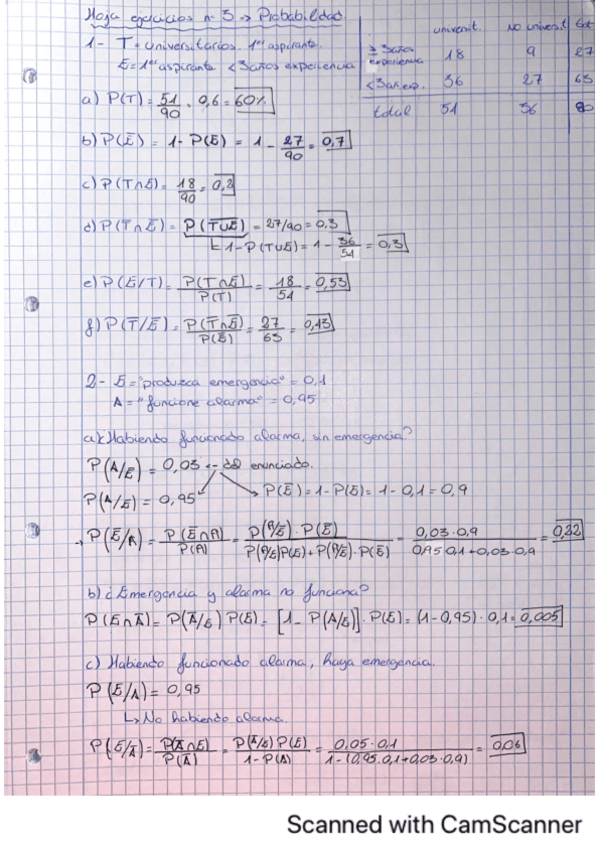 Hoja ejercicios nº 3 => Probabilidad.
1- T = universitarios. 1er aspirante.
E = 1er aspirante < 3 años experiencia
universit. No universit tot
≥ 3 años experiencia 18 9 27
< 3 añ exp. 36 27 63
total 54 36 90
a) P(T) = 51/90 = 0,6 = 60%
b) P(Ē) = 1 - P(E) = 1 - 27/90 = 0,7
c) P(T∩E) = 18/90 = 0,2
d) P(T̄∩Ē) = P(T∪E) = 27/90 = 0,3
↳ 1 - P(T∪E) = 1 - 36/51 = 0,3
e) P(E/T) = P(T∩E)/P(T) = 18/54 = 0,53
f) P(T̄/Ē) = P(T̄∩Ē)/P(Ē) = 27/63 = 0,43
2- E = "produzca emergencia" = 0,1
A = "funcione alarma" = 0,95
a) Habiendo funcionado alarma, sin emergencia?
P(A/Ē) = 0,03 <- del enunciado.
P(A/E) = 0,95
P(Ē) = 1 - P(E) = 1 - 0,1 = 0,9
→ P(Ē/A) = P(Ē∩A)/P(A) = P(A/Ē)·P(Ē)/P(A/E)P(E)+P(A/Ē)·P(Ē) = 0,03·0,9/0,95·0,1+0,03·0,9 = 0,22
b) ¿Emergencia y alarma no funciona?
P(E∩Ā) = P(Ā/E) P(E) = [1 - P(A/E)]·P(E) = (1 - 0,95)·0,1 = 0,005
c) Habiendo funcionado alarma, haya emergencia.
P(E/A) = 0,95
↳ No habiendo alarma.
P(E/Ā) = P(Ā∩E)/P(Ā) = P(Ā/E) P(E)/1-P(A) = 0,05·0,1/1-(0,95·0,1+0,03·0,9) = 0,06
Scanned with CamScanner